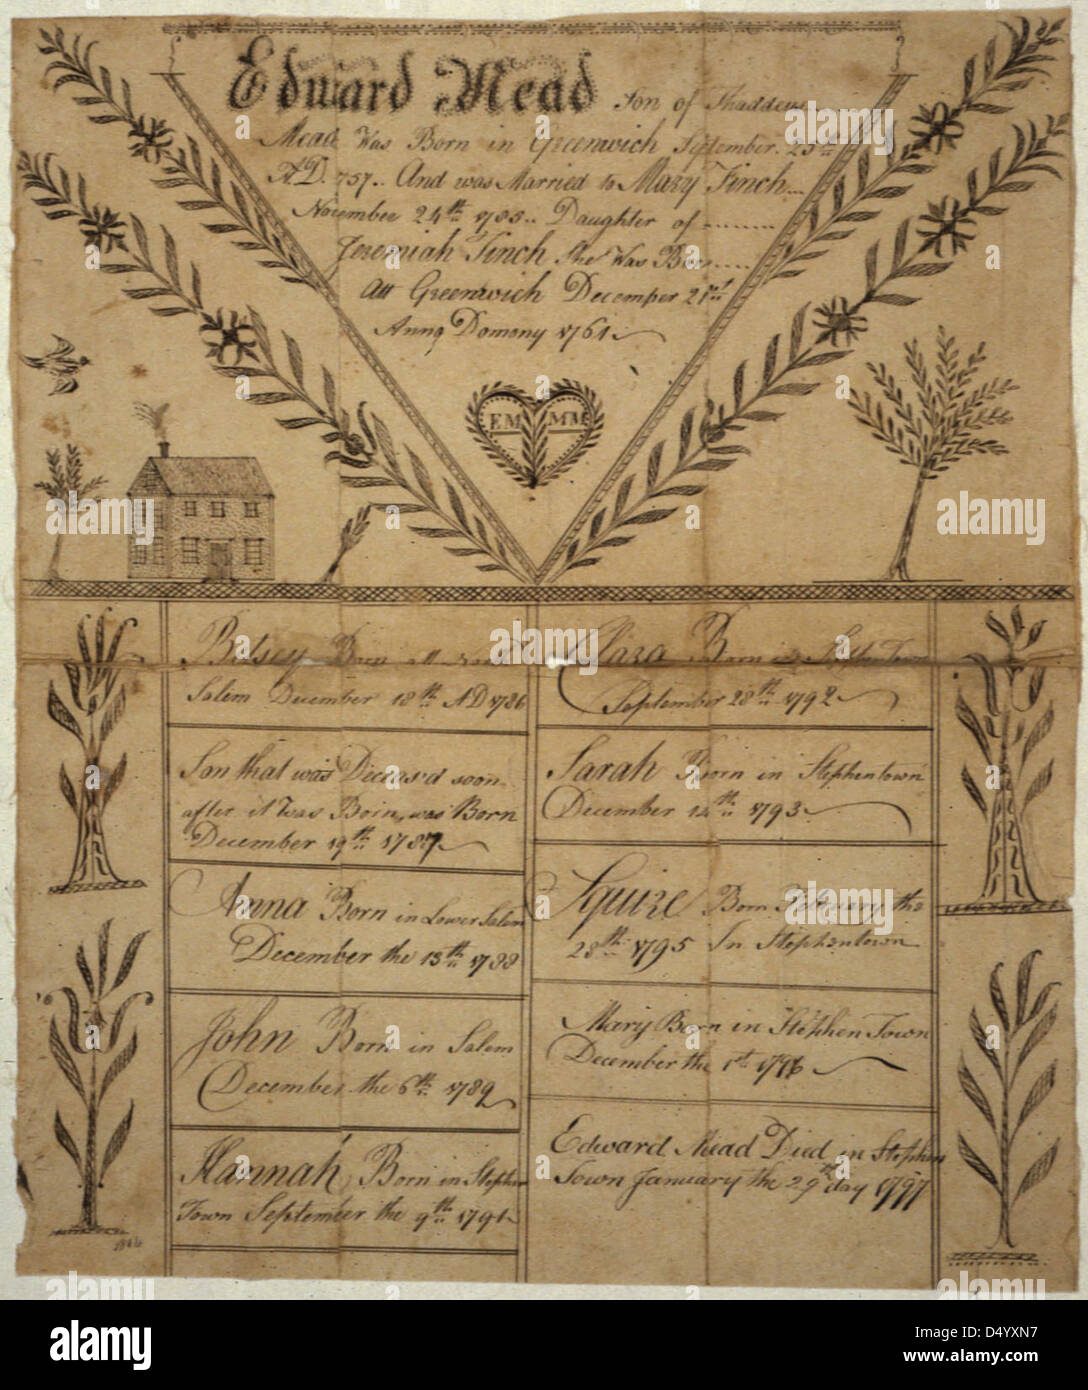 Edward Mead Son of Thaddeus
Mead Was Born in Greenwich September. 25th
A.D. 1757.. And was Married to Mary Finch...
November 24th 1785.. Daughter of
Jeremiah Finch She Was Born....
Att Greenwich Decemper 21st
Anno Domony 1761
EM MM
Betsey Born att
Salem December 18th AD 1786
Son that was Diceas'd soon
after it Was Born, was Born
December 19th 1787
Anna Born in Lower Salem
December the 13th 1788
John Born in Salem
December the 6th 1789
Hannah Born in Stephen
Town September the 9th 1791
Eliza Born in Stephen Town
September 28th 1792
Sarah Born in Stephentown
December 14th 1793
Squire Born February the
28th 1795 In Stephentown
Mary Born in Stephen Town
December the 1st 1796
Edward Mead Died in Stephen
Town January the 29th day 1797
alamy
alamy
Image ID: D4YXN7
www.alamy.com